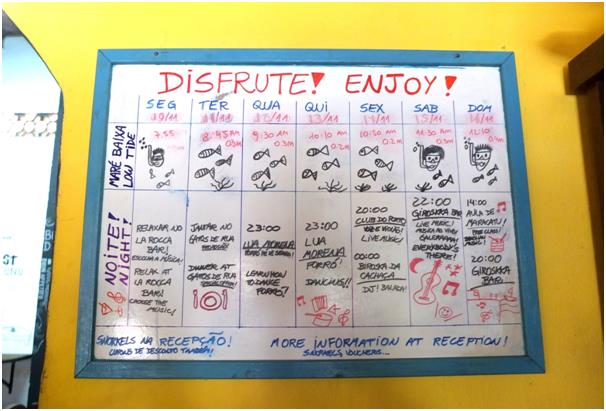 DISFRUTE! ENJOY!
SEG TER QUA QUI SEX SAB DOM
10/11 11/11 12/11 13/11 14/11 15/11 16/11
MARÉ BAIXA
LOW TIDE
7:55 8:45 AM 9:30 AM 10:10 AM 10:50 AM 11:30 AM 12:10
0.3M 0.3M 0.2M 0.2M 0.3M 0.4M
NOITE!
NIGHT!
RELAXAR NO
LA ROCCA
BAR!
ESCOLHA A MÚSICA!
RELAX AT
LA ROCCA
BAR!
CHOOSE THE
MUSIC!
JANTAR NO
GATOS DE RUA
DINNER AT
GATOS DE RUA
23:00
LUA MORENA
LEARN HOW
TO DANCE
FORRÓ!
23:00
LUA
MORENA
FORRÓ!
DANCING!!
20:00
CLUB DO PORTO
LIVE MUSIC!
00:00
BIROSKA DA
CACHAÇA
DJ! BALADA!
22:00
GIROSKA BAR
LIVE MUSIC!
MÚSICA AO VIVO
GALERAAAA!
EVERYBODY'S
THERE!
14:00
AULA DE
MARACATU!
FREE CLASS!
20:00
GIROSKA
BAR
SNORKELS NA RECEPÇÃO!
CUPONS DE DESCONTO TAMBÉM!
MORE INFORMATION AT RECEPTION!
SNORKELS, VOUCHERS...